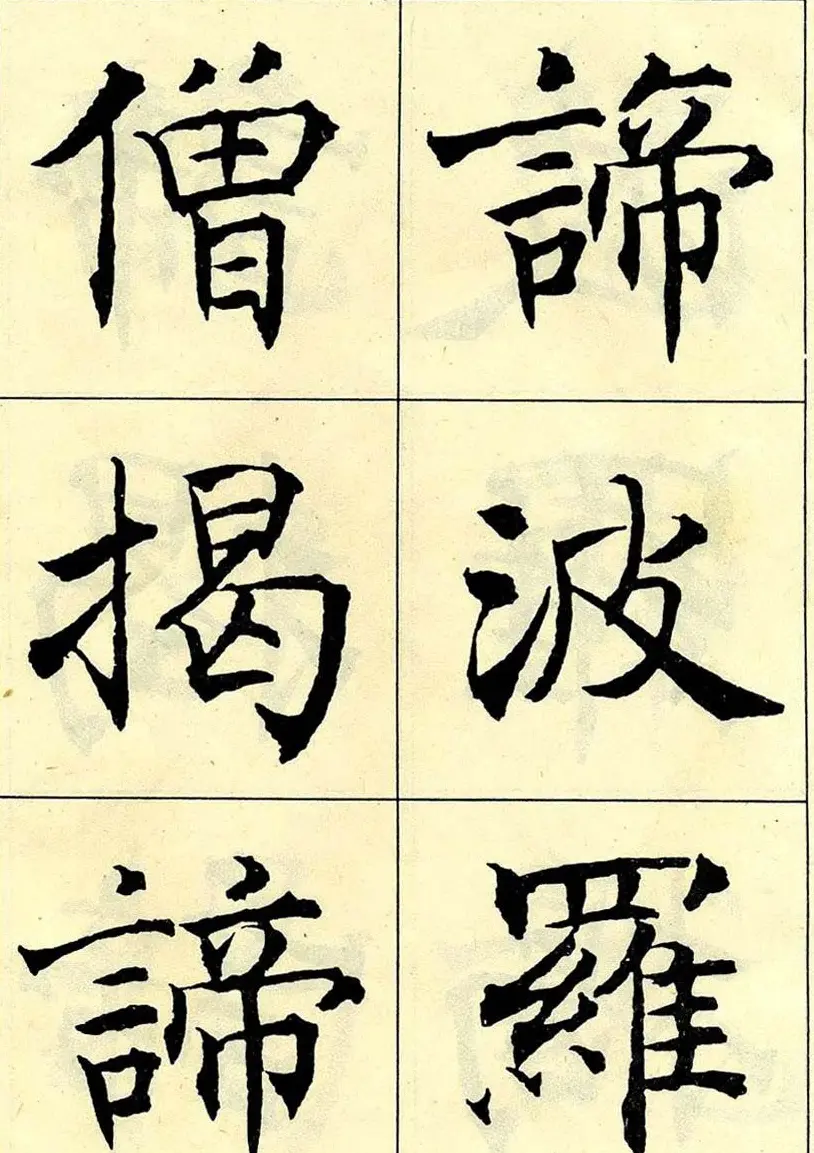 諦波羅
僧揭諦